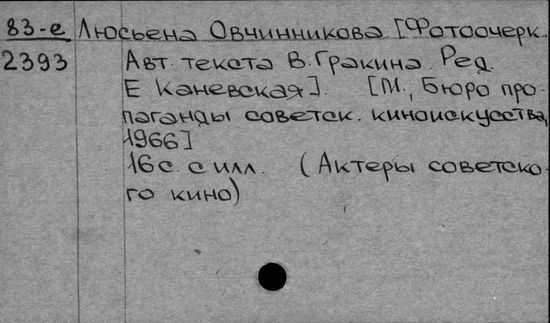 83-е Люсьена Овчинникова. [Фотоочерк.
2393 Авт. текста В. Гракина. Ред.
Е Каневская]. [М., Бюро про-
паганды советск. киноискусства,
1966]
16 с. с илл. (Актеры советско-
го кино)